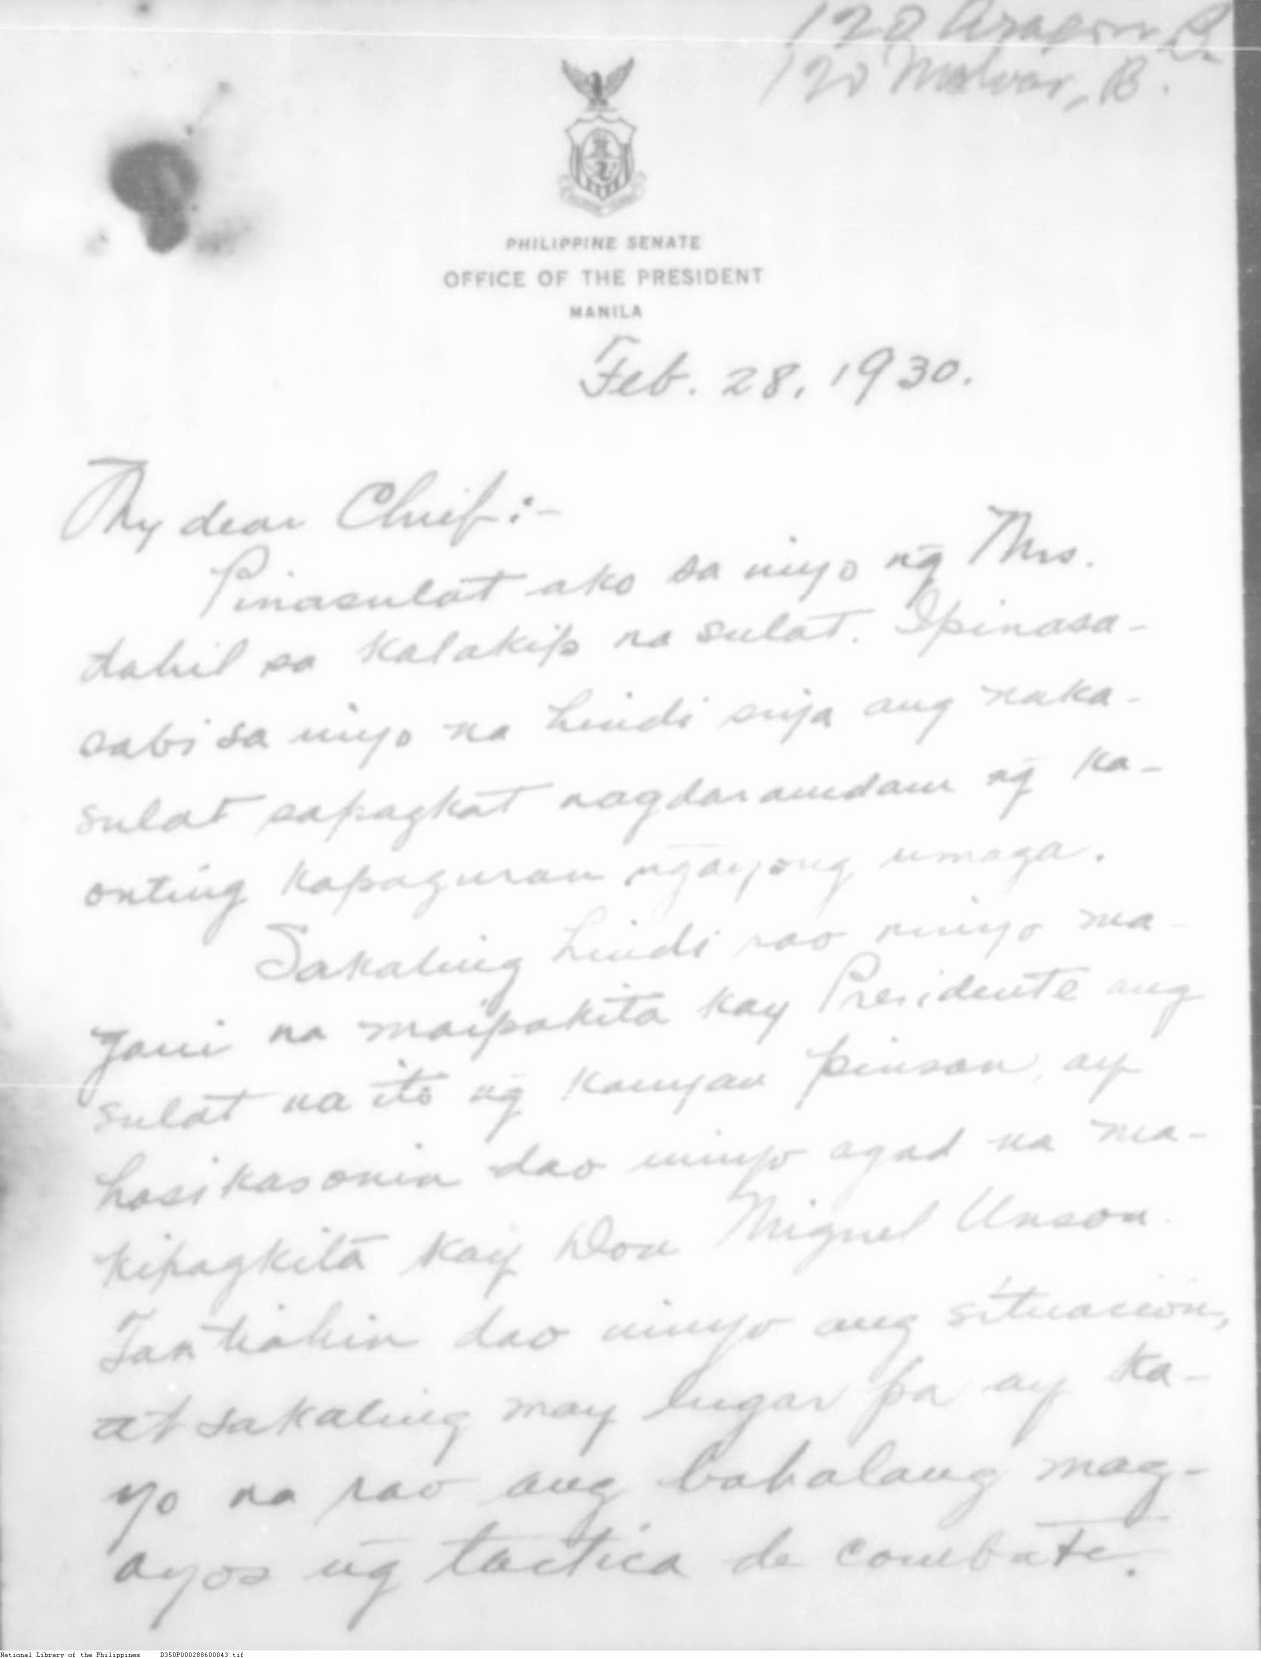 120 Aragon B.
120 Malvar, B.
PHILIPPINE SENATE
OFFICE OF THE PRESIDENT
MANILA
Feb. 28, 1930.
My dear Chief:-
Pinasulat ako sa inyo ng̃ Mrs.
dahil sa kalakip na sulat. Ipinasa-
sabi sa inyo na hindi siya ang naka-
sulat sapagkat nagdaramdam ng̃ ka-
onting kapaguran ng̃ayong umaga.
Sakaling hindi rao ninyo ma-
yari na maipakita kay Presidente ang
sulat na ito ng̃ kanyan pinsan, ay
hasikasonin dao ninyo agad na ma-
kipagkita kay Don Miguel Unson.
Tantiahin dao ninyo ang situacion,
at sakaling may lugar pa ay ka-
yo na rao ang bahalang mag-
ayos ng̃ tactica de combate.
National Library of the Philippines D350P000288600043.tif